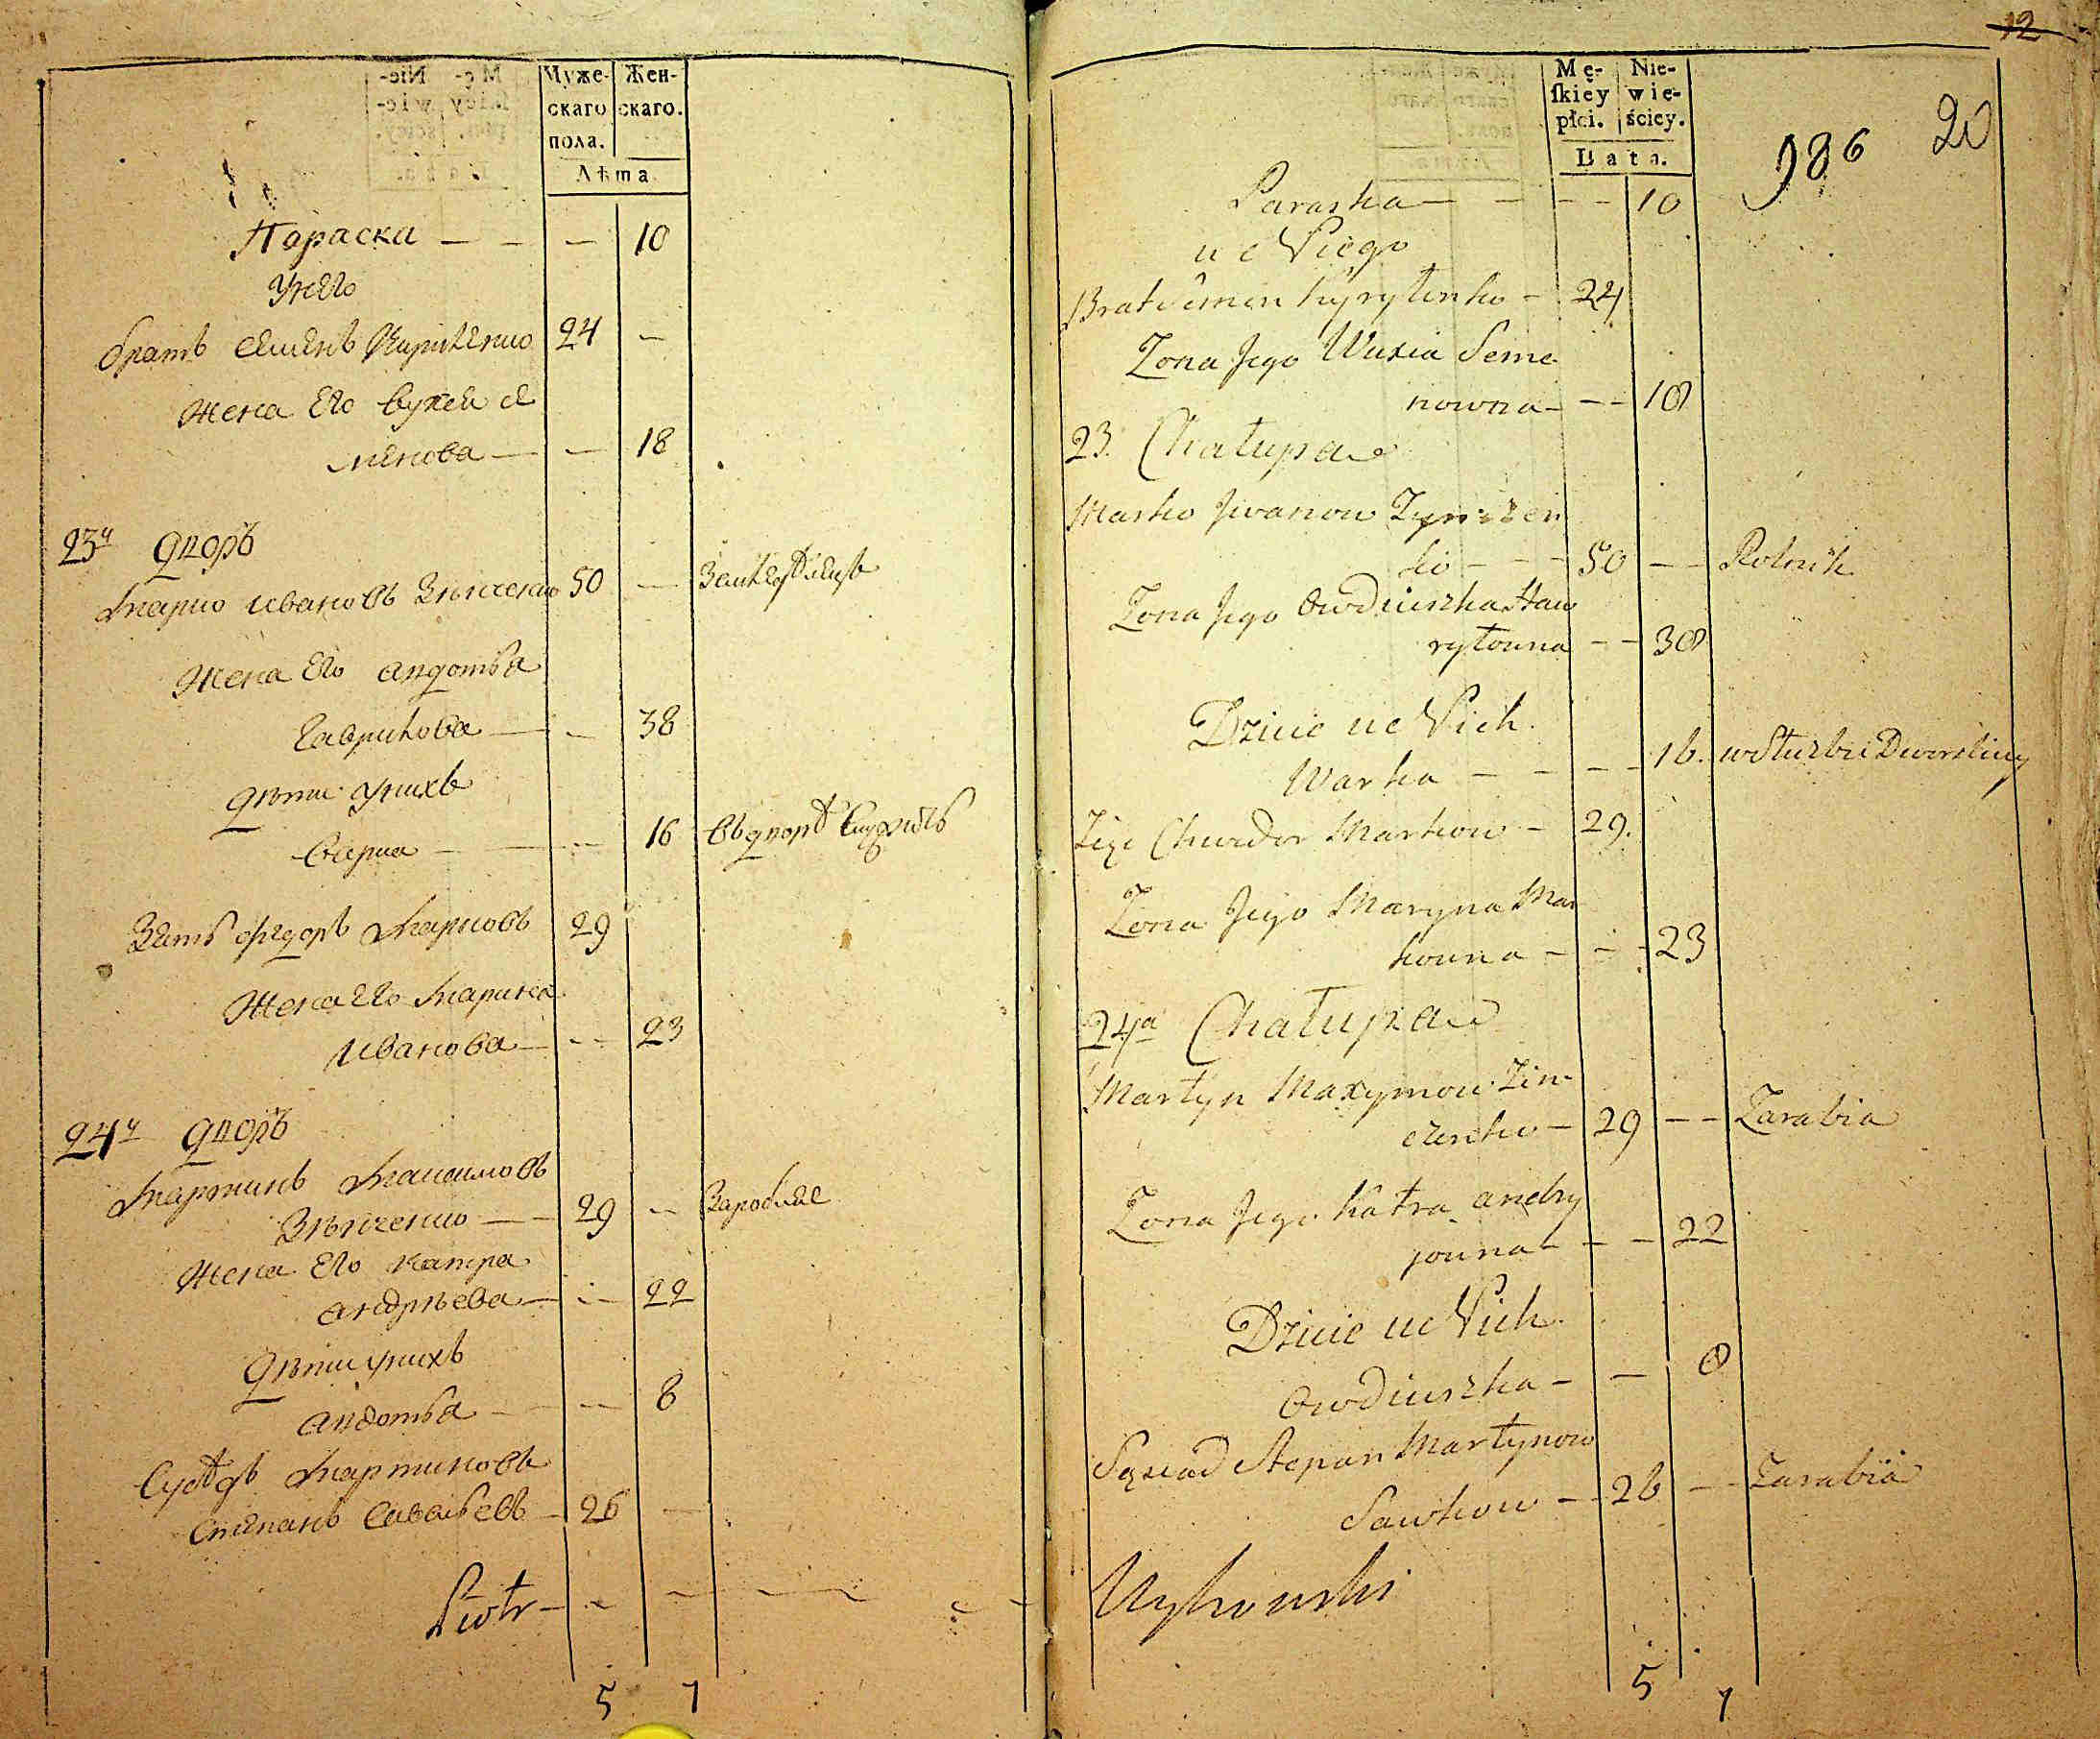 Муже-
скаго
пола.
Жен-
скаго.
Лѣта
Параска — — — 10
У него
братъ Семенъ Кириленко 24 —
жена его Вухея Се
менова — — 18
23й дворъ
Марко Ивановъ Зѣнченко 50 — Земледѣлецъ
жена его Авдотья
Гаврилова — — 38
дѣти у нихъ
Варка — — 16 въ дворѣ служитъ
Зять Федоръ Марковъ 29
жена его Марина
Иванова — — 23
24й дворъ
Мартинъ Максимовъ
Зѣнченко — 29 — Заробляе
жена его Катра
Андрѣева — — 22
дѣти у нихъ
Авдотья — — 8
Сусѣдъ Мартиновъ
Степанъ Савельевъ — 26 —
Piotr — — — —
5 7
12
Mę-
skiey
płci.
Nie-
wie-
ściey.
Lata.
986 20
Paraska — — — — 10
u Niego
Brat Semen Kyryłenko — 24
Zona Jego Wuxia Seme
nowna — — — 18
23. Chałupa
Marko Jwanow Zynczen
ko — — — 50 — — Rolnik
Zona Jego Owdiuszka Haw
ryłowna — — 38
Dzieci u Nich
Warka — — — — 16. w Słuzbie Dworskiey
Zięć Chwedor Markow — 29.
Zona Jego Maryna Mar
kowna — — — 23
24a Chałupa
Martyn Maxymow Zin
czenko — 29 — — Zarabia
Zona Jego Katra Andry
jowna — — — 22
Dzieci u Nich
Owdiuszka — — 8
Sąsiad Stepan Martynow
Sawkow — 26 — Zarabia
Wykowski
5 7